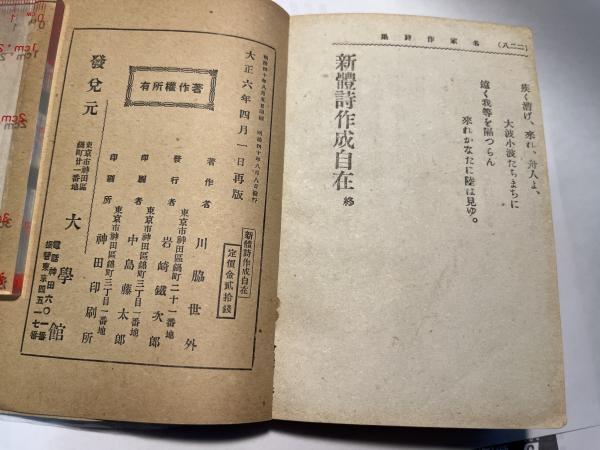 (二二八)
集詩作家名
疾く漕げ、來れ、舟人よ、
大波小波たちまちに
遠く我等を隔つらん
來れかなたに陸は見ゆ。
新體詩作成自在 終
明治四十年八月五日印刷 明治四十年八月八日發行
大正六年四月一日再版
有所權作著
新體詩作成自在
定價金貳拾錢
著作者 川脇世外
東京市神田區錦町二十一番地
發行者 岩崎鐵次郎
東京市神田區錦町三丁目一番地
印刷者 中島藤太郎
東京市神田區錦町三丁目一番地
印刷所 神田印刷所
發兌元
東京市神田區
錦町廿一番地
大學館
電話神田六〇一番
振替東京四五一七番